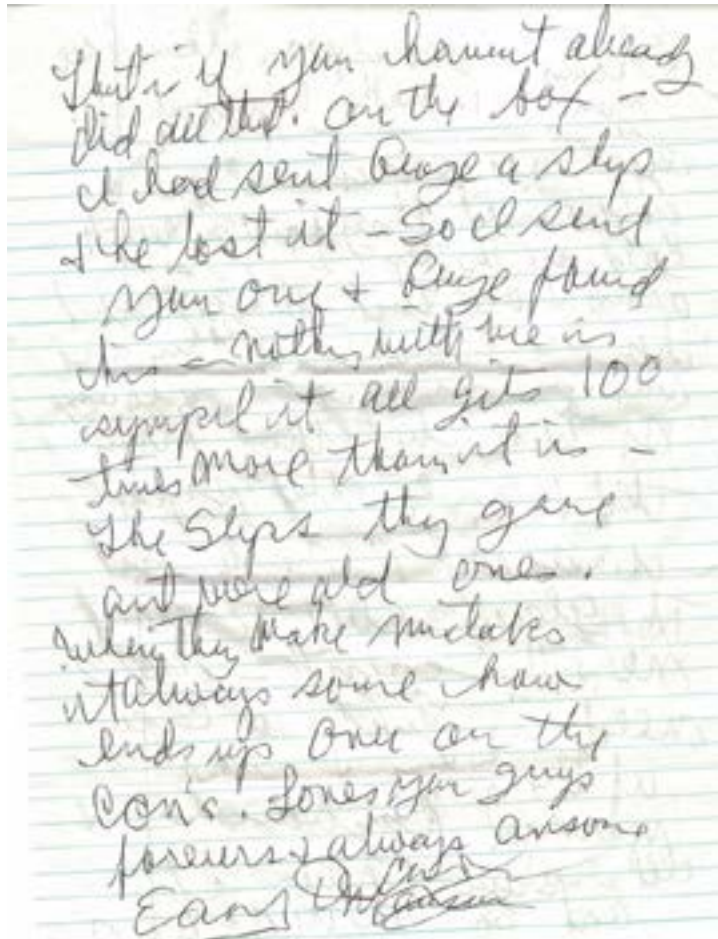 That is if you havent already
did all that. on the box -
I had sent a slip
& he lost it - So I send
you one & found
this - nothing with me is
sympel it all gits 100
times more than it is -
The Slips they gave
out were old ones.
when they make mistakes
it always some how
ends up over on the
con's. Loves you guys
forevers & always